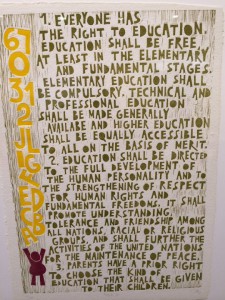 1. EVERYONE HAS
THE RIGHT TO EDUCATION.
EDUCATION SHALL BE FREE,
AT LEAST IN THE ELEMENTARY
AND FUNDAMENTAL STAGES.
ELEMENTARY EDUCATION SHALL
BE COMPULSORY. TECHNICAL AND
PROFESSIONAL EDUCATION
SHALL BE MADE GENERALLY
AVAILABE AND HIGHER EDUCATION
SHALL BE EQUALLY ACCESSIBLE
TO ALL ON THE BASIS OF MERIT.
2. EDUCATION SHALL BE DIRECTED
TO THE FULL DEVELOPMENT OF
THE HUMAN PERSONALITY AND TO
THE STRENGTHENING OF RESPECT
FOR HUMAN RIGHTS AND
FUNDAMENTAL FREEDOMS. IT SHALL
PROMOTE UNDERSTANDING,
TOLERANCE AND FRIENDSHIP AMONG
ALL NATIONS, RACIAL OR RELIGIOUS
GROUPS, AND SHALL FURTHER THE
ACTIVITIES OF THE UNITED NATIONS
FOR THE MAINTENANCE OF PEACE.
3. PARENTS HAVE A PRIOR RIGHT
TO CHOOSE THE KIND OF
EDUCATION THAT SHALL BE GIVEN
TO THEIR CHILDREN.